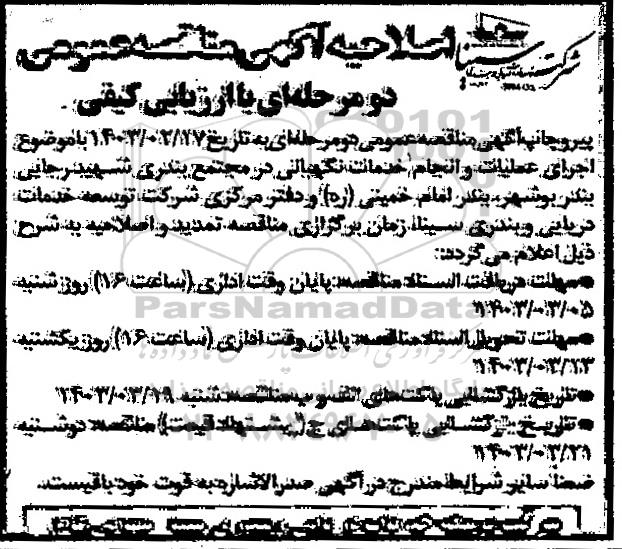 شرکت سینا
اصلاحیه آگهی مناقصه عمومی
دو مرحله‌ای با ارزیابی کیفی
پیرو چاپ آگهی مناقصه عمومی دو مرحله‌ای به تاریخ ۱۴۰۳/۰۲/۲۷ با موضوع
اجرای عملیات و انجام خدمات نگهبانی در مجتمع بندری شهید رجایی
بندر بوشهر، بندر امام خمینی (ره) و دفتر مرکزی شرکت توسعه خدمات
دریایی و بندری سینا، زمان برگزاری مناقصه تمدید و اصلاحیه به شرح
ذیل اعلام می‌گردد:
●مهلت دریافت اسناد مناقصه: پایان وقت اداری (ساعت ۱۶) روز شنبه
۱۴۰۳/۰۳/۰۵
●مهلت تحویل اسناد مناقصه: پایان وقت اداری (ساعت ۱۶) روز یکشنبه
●تاریخ بازگشایی پاکت‌های الف و ب مناقصه: شنبه ۱۴۰۳/۰۳/۱۹
●تاریخ بازگشایی پاکت‌های ج (پیشنهاد قیمت) مناقصه: دوشنبه
۱۴۰۳/۰۳/۲۱
ضمناً سایر شرایط مندرج در آگهی صدرالاشاره به قوت خود باقیست.
ParsNamadData